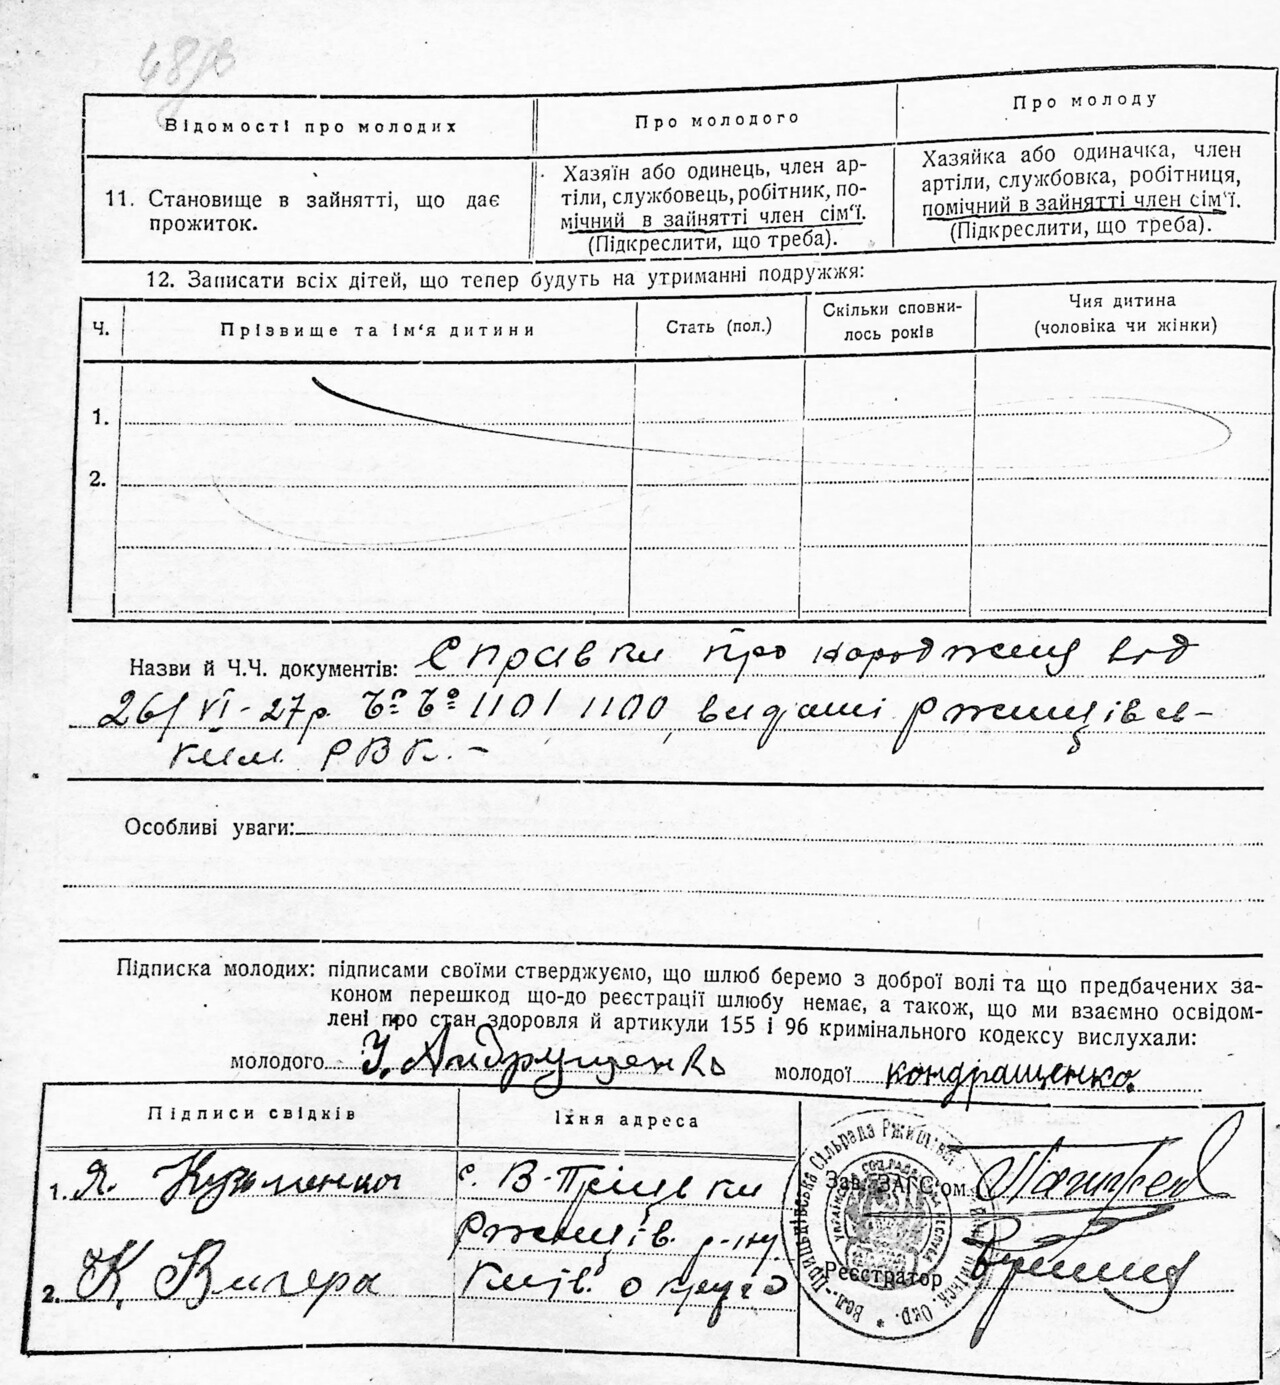 48/зв
Відомості про молодих
Про молодого
Про молоду
11. Становище в зайнятті, що дає
прожиток.
Хазяїн або одинець, член ар-
тіли, службовець, робітник, по-
мічний в зайнятті член сім'ї.
(Підкреслити, що треба).
Хазяйка або одиначка, член
артіли, службовка, робітниця,
помічний в зайнятті член сім'ї.
(Підкреслити, що треба).
12. Записати всіх дітей, що тепер будуть на утриманні подружжя:
Ч.
Прізвище та ім'я дитини
Стать (пол.)
Скільки сповни-
лось років
Чия дитина
(чоловіка чи жінки)
1.
2.
Назви й Ч.Ч. документів: Справки про народженя від
26/VI-27р. 1101 1100, видані Ржищівсь-
ким РВК. –
Особливі уваги:
Підписка молодих: підписами своїми стверджуємо, що шлюб беремо з доброї волі та що предбачених за-
коном перешкод що-до реєстрації шлюбу немає, а також, що ми взаємно освідом-
лені про стан здоровля й артикули 155 і 96 кримінального кодексу вислухали:
молодого У. Андрущенко молодої кондращенко.
Підписи свідків
Їхня адреса
1. Я. Кузьменко
с. В-Пріцьки
Ржищів. р-ну
2. К. Вигера
Київ. округа
Зав. ЗАГС'ом
Реєстратор